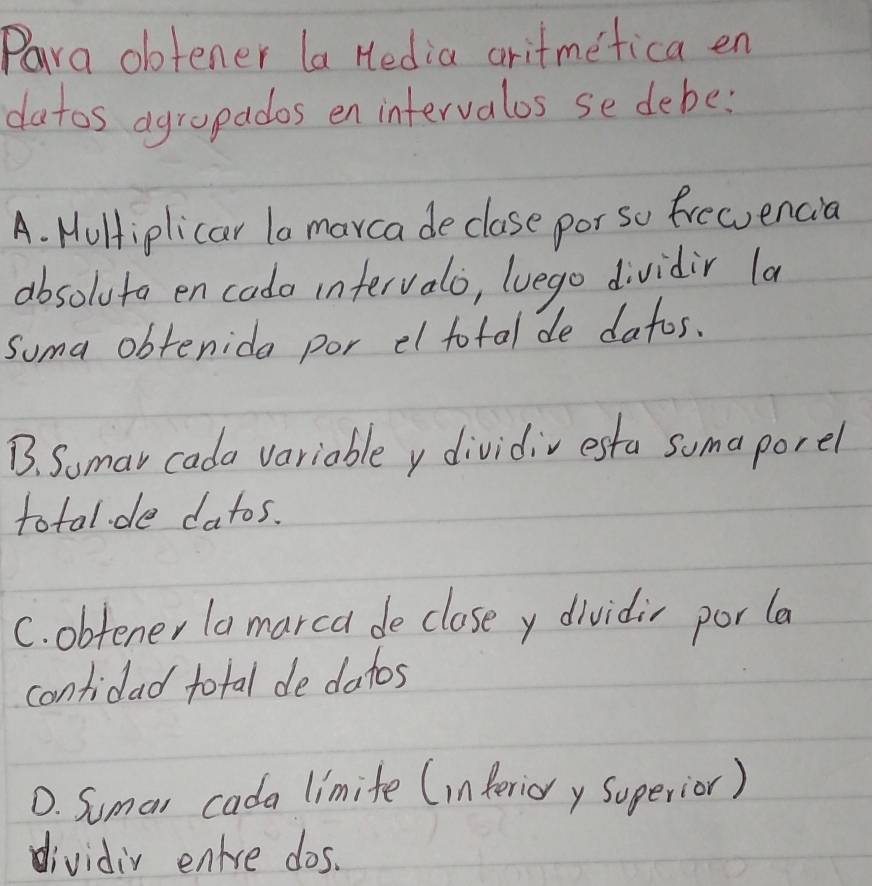 Para obtener la Media aritmética en
datos agrupados en intervalos se debe:
A. Multiplicar la marca de clase por su frecuencia
absoluta en cada intervalo, luego dividir la
suma obtenida por el total de datos.
B. Sumar cada variable y dividir esta suma por el
total de datos.
C. obtener la marca de clase y dividir por la
cantidad total de datos
D. Sumar cada límite (inferior y superior)
dividir entre dos.